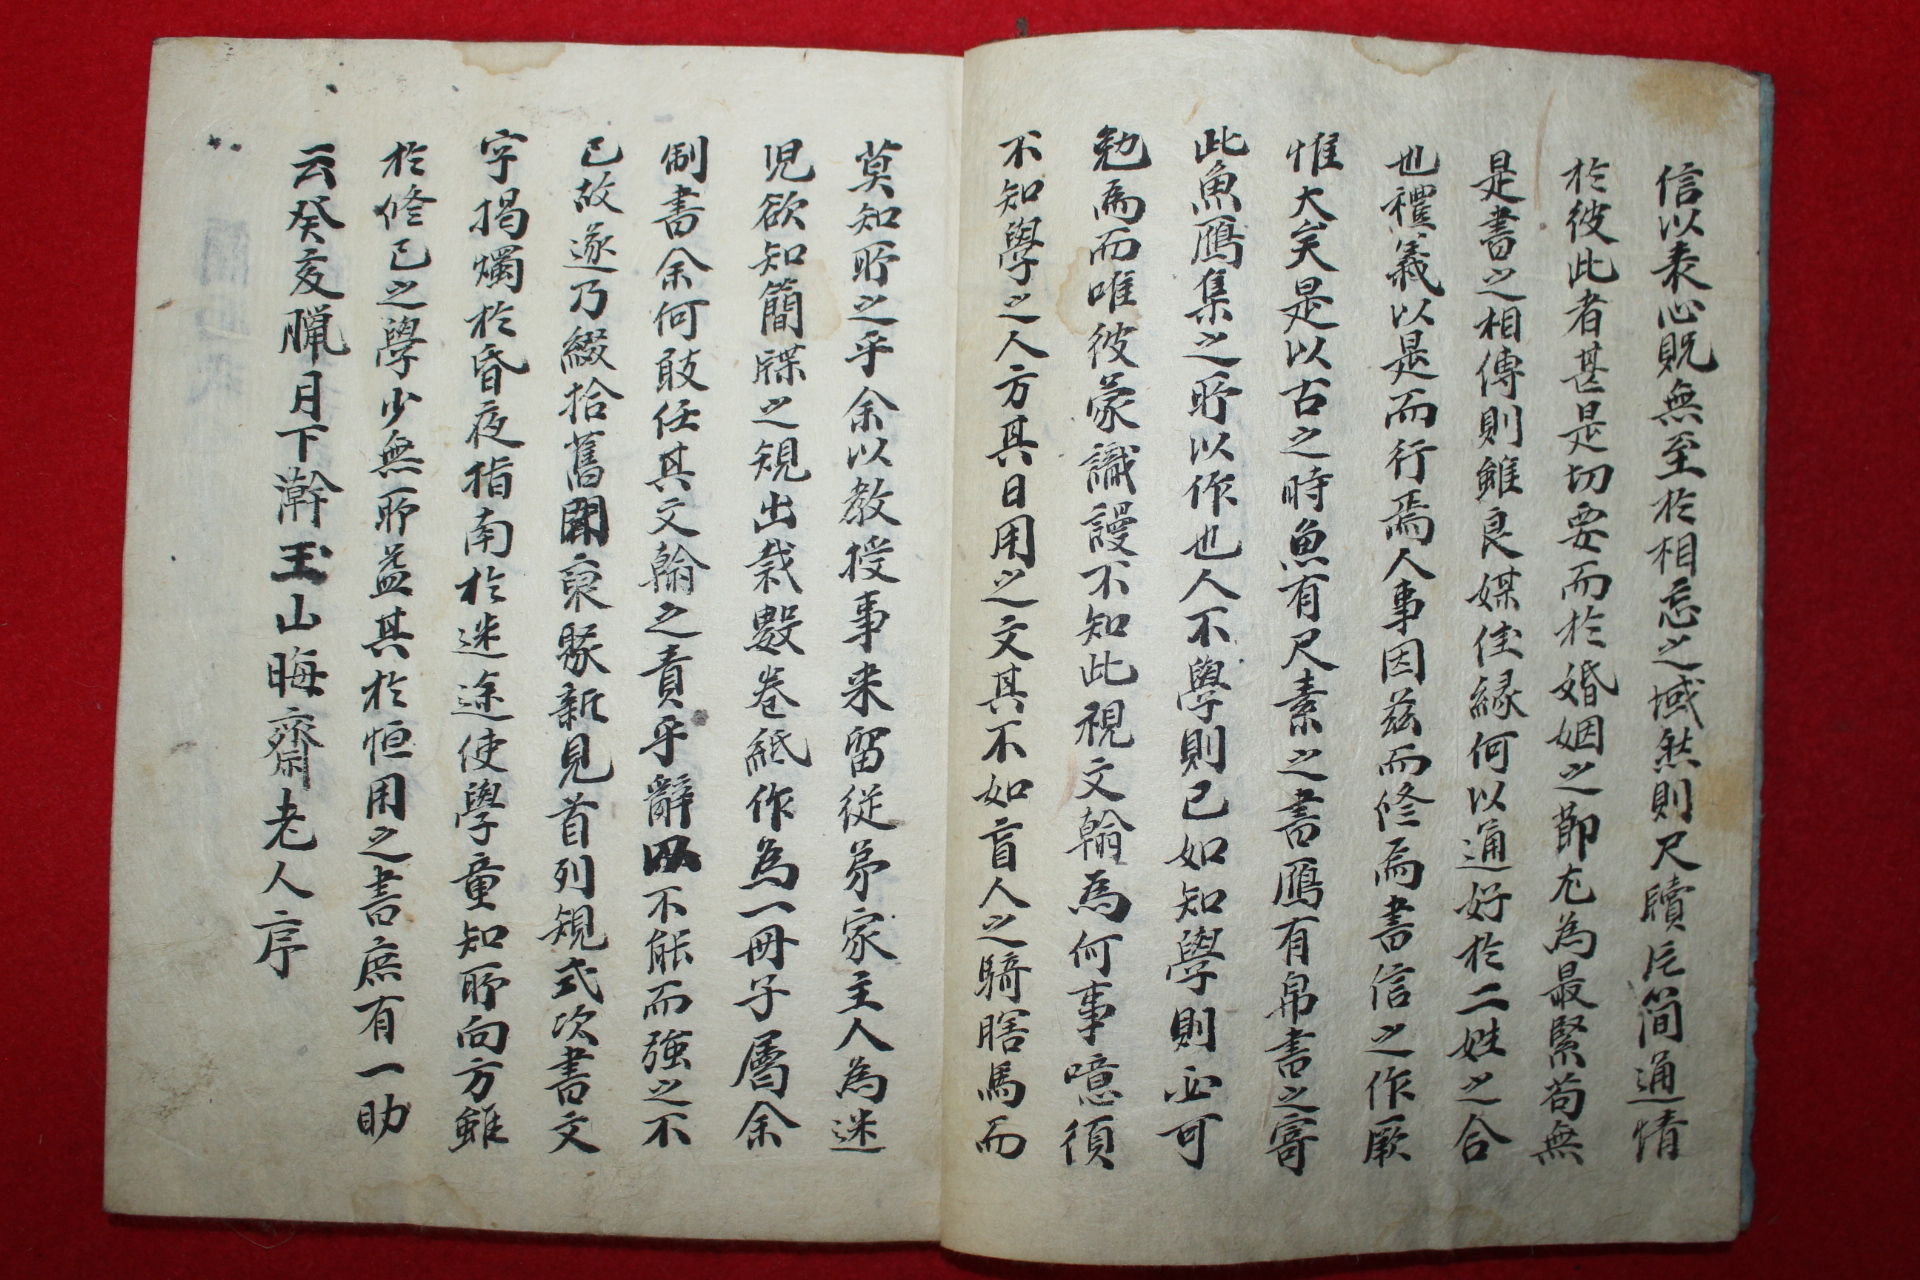 信以表心旣無至於相忘之域然則尺牘片簡通情
於彼此者甚是切要而於婚姻之節尤為最緊苟無
是書之相傳則雖良媒佳緣何以通好於二姓之合
也禮義以是而行焉人事因玆而修焉書信之作厥
惟大矣是以古之時魚有尺素之書鴈有帛書之寄
此魚鴈集之所以作也人不學則已如知學則必可
勉焉而唯彼蒙識謾不知此視文翰為何事噫須
不知學之人方其日用之文其不如盲人之騎瞎馬而
莫知所之乎余以教授事来留從弟家主人為迷
児欲知簡牒之規出栽數卷紙作為一冊子屬余
制書余何敢任其文翰之責乎辭以不能而強之不
已故遂乃綴拾舊聞裒聚新見首列規式次書文
字揭燭於昏夜指南於迷途使學童知所向方雖
於修己之學少無所益其於恒用之書庶有一助
云癸亥臘月下澣玉山晦齋老人序